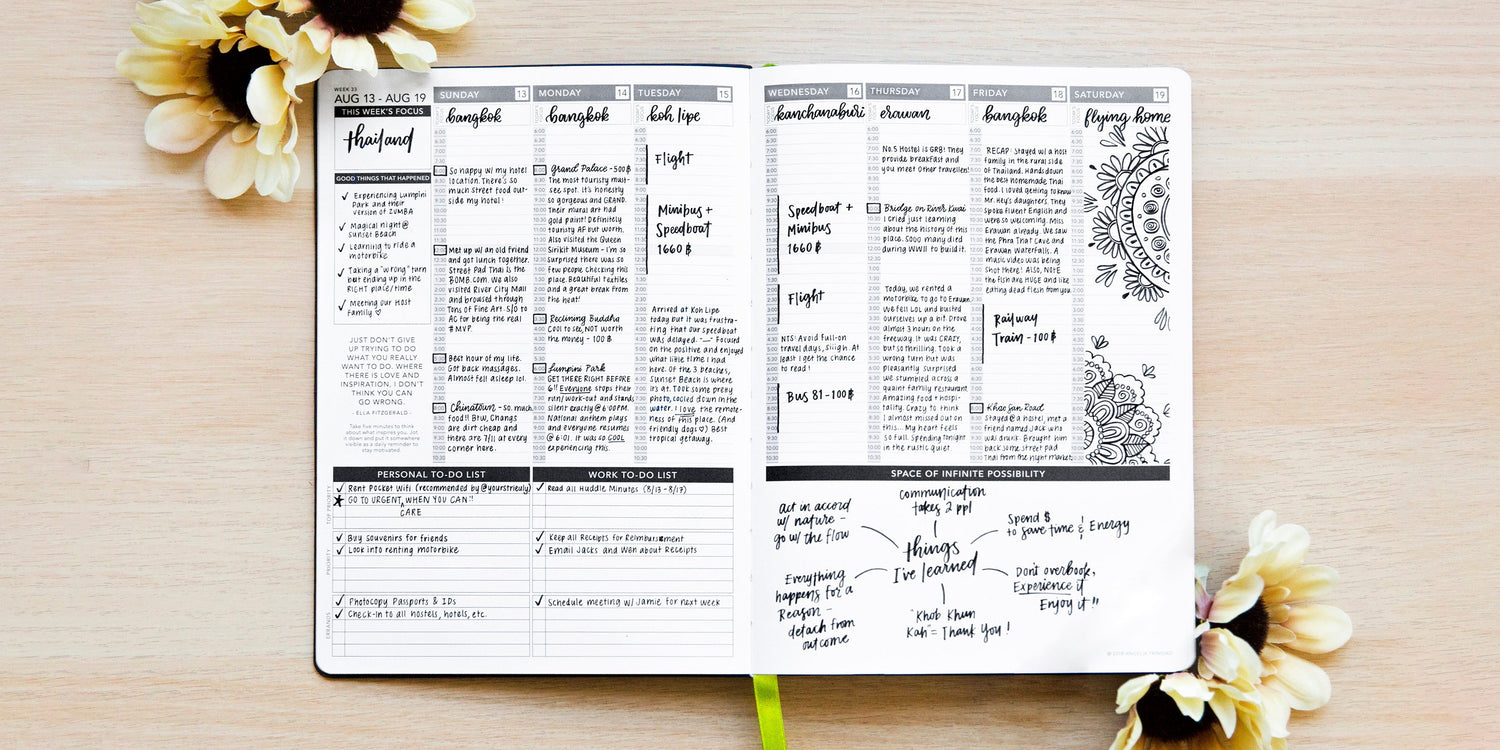 WEEK 33
AUG 13 - AUG 19
THIS WEEK'S FOCUS
thailand
GOOD THINGS THAT HAPPENED
✓ Experiencing Lumpini
Park and their
version of ZUMBA
✓ Magical night @
Sunset Beach
✓ Learning to ride a
motorbike
✓ Taking a "wrong" turn
but ending up in the
RIGHT place/time
✓ Meeting our Host
Family ♡
JUST DON'T GIVE
UP TRYING TO DO
WHAT YOU REALLY
WANT TO DO. WHERE
THERE IS LOVE AND
INSPIRATION, I DON'T
THINK YOU CAN
GO WRONG.
- ELLA FITZGERALD -
Take five minutes to think
about what inspires you. Jot
it down and put it somewhere
visible as a daily reminder to
stay motivated.
SUNDAY 13
bangkok
So happy w/ my hotel
location. There's so
much street food out-
side my hotel!
Met up w/ an old friend
and got lunch together.
Street Pad Thai is the
BOMB.com. We also
visited River City Mall
and browsed through
Tons of Fine Art. S/O to
AC for being the real
#MVP.
Best hour of my life.
Got back massages.
Almost fell asleep lol.
Chinatown - so much
food!! Btw, Changs
are dirt cheap and
there are 7/11 at every
corner here.
MONDAY 14
bangkok
Grand Palace - 500฿
The most touristy must-
see spot. It's honestly
so gorgeous and GRAND.
Their mural art had
gold paint! Definitely
touristy AF but worth.
Also visited the Queen
Sirikit Museum - I'm so
surprised there was so
few people checking this
place. Beautiful textiles
and a great break from
the heat!
Reclining Buddha
Cool to see, NOT worth
the money - 100 ฿
Lumpini Park
GET THERE RIGHT BEFORE
6!! Everyone stops their
run/work-out and stands
silent exactly @ 6:00PM.
National anthem plays
and everyone resumes
@ 6:01. It was so COOL
experiencing this.
TUESDAY 15
koh lipe
Flight
Minibus +
Speedboat
1660 ฿
Arrived at Koh Lipe
today but it was frustra-
ting that our speedboat
was delayed. -__- Focused
on the positive and enjoyed
what little time I had
here. Of the 3 beaches,
Sunset Beach is where
it's at. Took some pretty
photo, cooled down in the
water. I love the remote-
ness of this place. (And
friendly dogs ♡) Best
tropical getaway.
WEDNESDAY 16
kanchanaburi
Speedboat +
Minibus
1660 ฿
Flight
NTS: Avoid full-on
travel days, siiigh. At
least I get the chance
to read!
Bus 81 - 100฿
THURSDAY 17
erawan
No.5 Hostel is GR8! They
provide breakfast and
you meet other travellers!
Bridge on River Kwai
I cried just learning
about the history of this
place. Sooo many died
during WWII to build it.
Today, we rented a
motorbike to go to Erawan.
We fell LOL and busted
ourselves up a bit. Drove
almost 3 hours on the
freeway. It was CRAZY,
but so thrilling. Took a
wrong turn but was
pleasantly surprised
we stumbled across a
quaint family restaurant.
Amazing food + hospi-
tality. Crazy to think
I almost missed out on
this... My heart feels
so full. Spending tonight
in the rustic quiet.
FRIDAY 18
bangkok
RECAP: Stayed w/ a host
family in the rural side
of Thailand. Hands down
the best homemade Thai
food. I loved getting to know
Mr. Hey's daughters. They
spoke fluent English and
were so welcoming. Miss
Erawan already. We saw
the Phra That Cave and
Erawan Waterfalls. A
music video was being
shot there! ALSO, NOTE
the fish are HUGE and like
eating dead flesh from you
Railway
Train - 100 ฿
Khao San Road
Stayed @ a hostel, met a
friend named Jack who
was drunk. Brought him
back some street pad
Thai from the night market.
SATURDAY 19
flying home
PERSONAL TO-DO LIST
TOP PRIORITY
✓ Rent Pocket Wifi (recommended by @yourstrieuly)
GO TO URGENT CARE WHEN YOU CAN!!
PRIORITY
✓ Buy souvenirs for friends
✓ Look into renting motorbike
ERRANDS
✓ Photocopy Passports & IDs
✓ Check-in to all hostels, hotels, etc.
WORK TO-DO LIST
✓ Read all Huddle Minutes (8/13 - 8/17)
✓ Keep all Receipts for Reimbursement
✓ Email Jacks and Wen about Receipts
✓ Schedule meeting w/ Jamie for next week
SPACE OF INFINITE POSSIBILITY
act in accord
w/ nature -
go w/ the flow
communication
takes 2 ppl
Spend $
to save time & Energy
things
I've learned
Everything
happens for a
Reason -
detach from
outcome
"Khob Khun
Kah" = Thank You!
Don't overbook,
Experience it
Enjoy it!!
© 2018 ANGELIA TRINIDAD